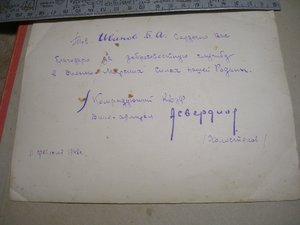 Тов. Иванов Б. А. Сердечно Вас
благодарю за добросовестную службу
в Военно-Морских Силах нашей Родины.
Командующий
Вице-адмирал
(Холостяков)
1948 г.